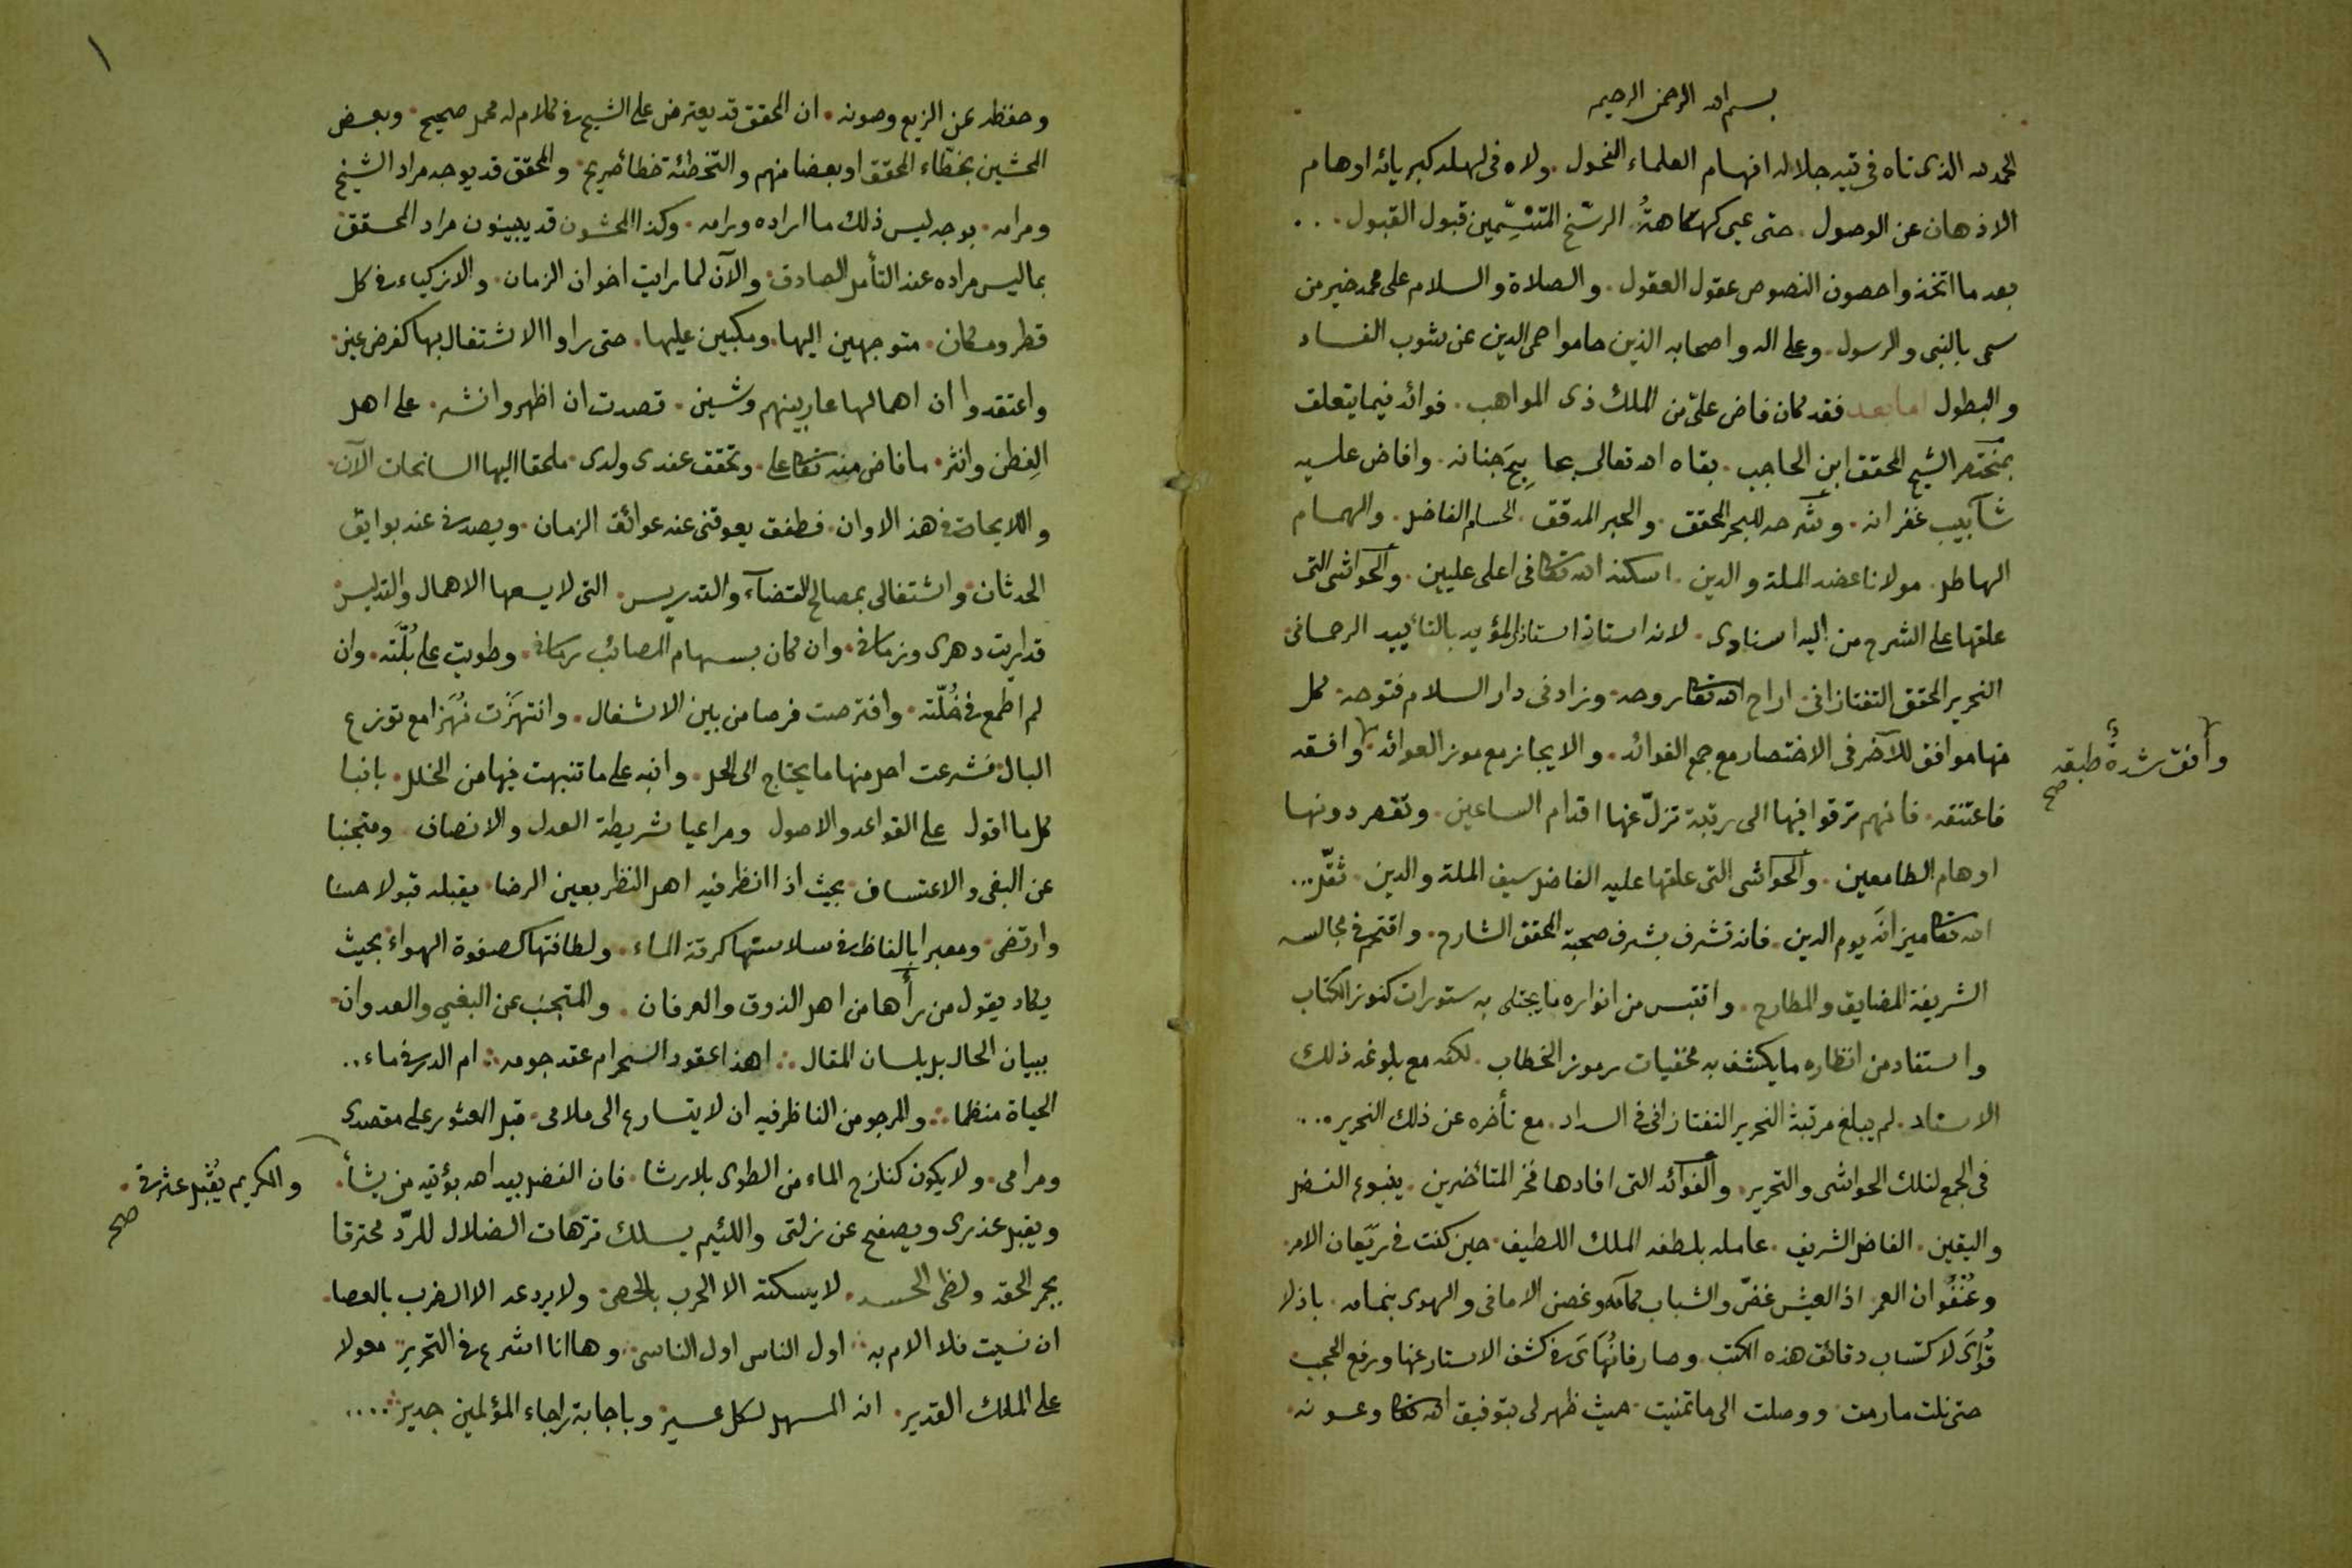 بسم الله الرحمن الرحيم
الحمد لله الذى تاه فى تيه جلاله افهام العلماء الفحول . ولاه فى لهله كبريائه اوهام
الاذهان عن الوصول . حتى عمى كهكاهةُ الرسّخ المتنسِّمين قبول القبول . . .
بعد ما اتخذوا حصون النصوص عقول العقول . والصلاة والسلام على محمد خير من
سمى بالنبى والرسول . وعلى اله واصحابه الذين حاموا حمى الدين عن شوب الفساد
والبطول اما بعد فقد كان فاض علىّ من الملك ذى المواهب . فوائد فيما يتعلق
بمختصر الشيخ المحقق ابن الحاجب . بقاه الله تعالى بحابيح جنانه . وافاض عليه
شآبيب غفرانه . وشرحه للبحر المحقق . والحبر المدقق . الحسام الفاضل . والهمام
الهاطل . مولانا عضد الملة والدين . اسكنه الله تعالى فى اعلى عليين . والحواشى التى
علقها على الشرح من اليه اسنادى . لانه استاذ استاذ المؤيد بالتأييد الرحمانى
النحرير المحقق التفتازانى . اراح الله تعالى روحه . وزاد فى دار السلام فتوحه . كل
منها موافق للآخر فى الاختصار مع جمع الفوائد . والايجاز مع موز العوائد . وافقه
وافق شدةً طبقه صح
فاعتنقه . فانهم ترقوا فيها الى رتبة تزلّ عنها اقدام الساعين . وتقصر دونها
اوهام الطامعين . والحواشى التى علقها عليه الفاضل سيف الملة والدين . ثقّل...
الله تعالى ميزانَه يوم الدين . فانه تشرف بشرف صحبة المحقق الشارح . واقتحم فى مجالسه
الشريفة المضايق والمطارح . واقتبس من انواره ما يجتلى به ستورات كنوز الكتاب
واستفاد من انظاره ما يكشف به مخفيات رموز الخطاب . لكنه مع بلوغه ذلك
الاستاد . لم يبلغ مرتبة النحرير التفتازانى فى السداد . مع تأخره عن ذلك النحرير . . .
فى الجمع لتلك الحواشى والتحرير . والفوائد التى افادها فخر المتأخرين . ينبوع الفضل
واليقين . الفاضل الشريف . عامله بلطفه الملك اللطيف . حين كنت فى رَيَعان الامر
وعُنْفُوان العمر اذ العيش غضّ والشباب بمائه وغصن الامانى والهوى بنمائه . باذلا
قُوَاىَ لاكتساب دقائق هذه الكتب . وصارفا نُهَاىَ فى كشف الاستار عنها ورفع الحجب
حتى نلت ما رمت . ووصلت الى ما تمنيت . حيث ظهر لى بتوفيق الله تعالى وعونه .
١
وحفظه عن الزيع وصونه . ان المحقق قد يعترض على الشيخ فى كلام له محمل صحيح . وبعض
المحشين بخطّاء المحقق او بعضا منهم والتخطئة خطأ صريح . والمحقق قد يوجه مراد الشيخ
ومرامه . بوجه ليس ذلك ما اراده ورامه . وكذا المحشون قد يبينون مراد المحقق
بما ليس مراده عند التأمل الصادق . والآن لما رايت اخوان الزمان . والازكياء فى كل
قطر ومكان . متوجهين اليها . ومكبين عليها . حتى راوا الاشتغال بها كفرض عين .
واعتقدوا ان اهمالها عار بينهم وشين . قصدت ان اظهر وانشر . على اهل
الفِطن وانثر . ما فاض منه تعالى على . وتحقق عندى ولدى . ملحقا اليها السانحات الآن .
واللايحات فى هذ الاوان . فطفق يعوقنى عنه عوائق الزمان . ويصدنى عنه بوايق
الحدثان . واشتغالى بمصالح القضآء والتدريس . التى لا يسعها الاهمال والتدليس
قد اربت دهرى وزمانى . وان كان بسهام المصائب رمانى . وطويت على بُلّته . وان
لم اطمع فى خُلّته . وافترصت فرصا من بين الاشغال . وانتهزت نُهَزا مع توزع
البال . فشرعت احل منها ما يحتاج الى الحل . وانبه على ما تنبهت فيها من الخلل . بانيا
كل ما اقول على القواعد والاصول ومراعيا شريطة العدل والانصاف . ومتجنبا
عن البغى والاعتساف . بحيث اذا انظر فيه اهل النظر بعين الرضا . يقبله قبولا حسنا
وارتضى . ومعبرا بالفاظ فى سلاستها كرقة الماء . ولطافتها كصفوة الهواء . بحيث
يكاد يقول من رأها من اهل الذوق والعرفان . والمتجنب عن البغى والعدوان .
ببيان الحال بل بلسان المقال ∴ اهذا عقود السحر ام عقد جوهر ∴ ام الدر فى ماء ..
الحياة منظما ∴ والمرجو من الناظر فيه ان لا يتسارع الى ملامى . قبل العثور على مقصدى
ومرامى . ولا يكون كنازح الماء من الطوى بلا رشا . فان الفضل بيد الله يؤتيه من يشأ .
والكريم يُقْبل عثرتى . صح
ويقبل عذرى ويصفح عن زلتى واللئيم يسلك ترّهات الضلال للردّ محترقا
بجمر الحقد ولظى الحسد . لا يسكته الا الحرب بالحصى . ولا يردعه الا الضرب بالعصا .
ان نسيت فلا الام به ∴ اول الناس اول الناسى ∴ وها انا اشرع فى التحرير معولا
على الملك القدير . انه المسهل لكل عسير . وباجابة راجاء المؤلمين جدير . . . .